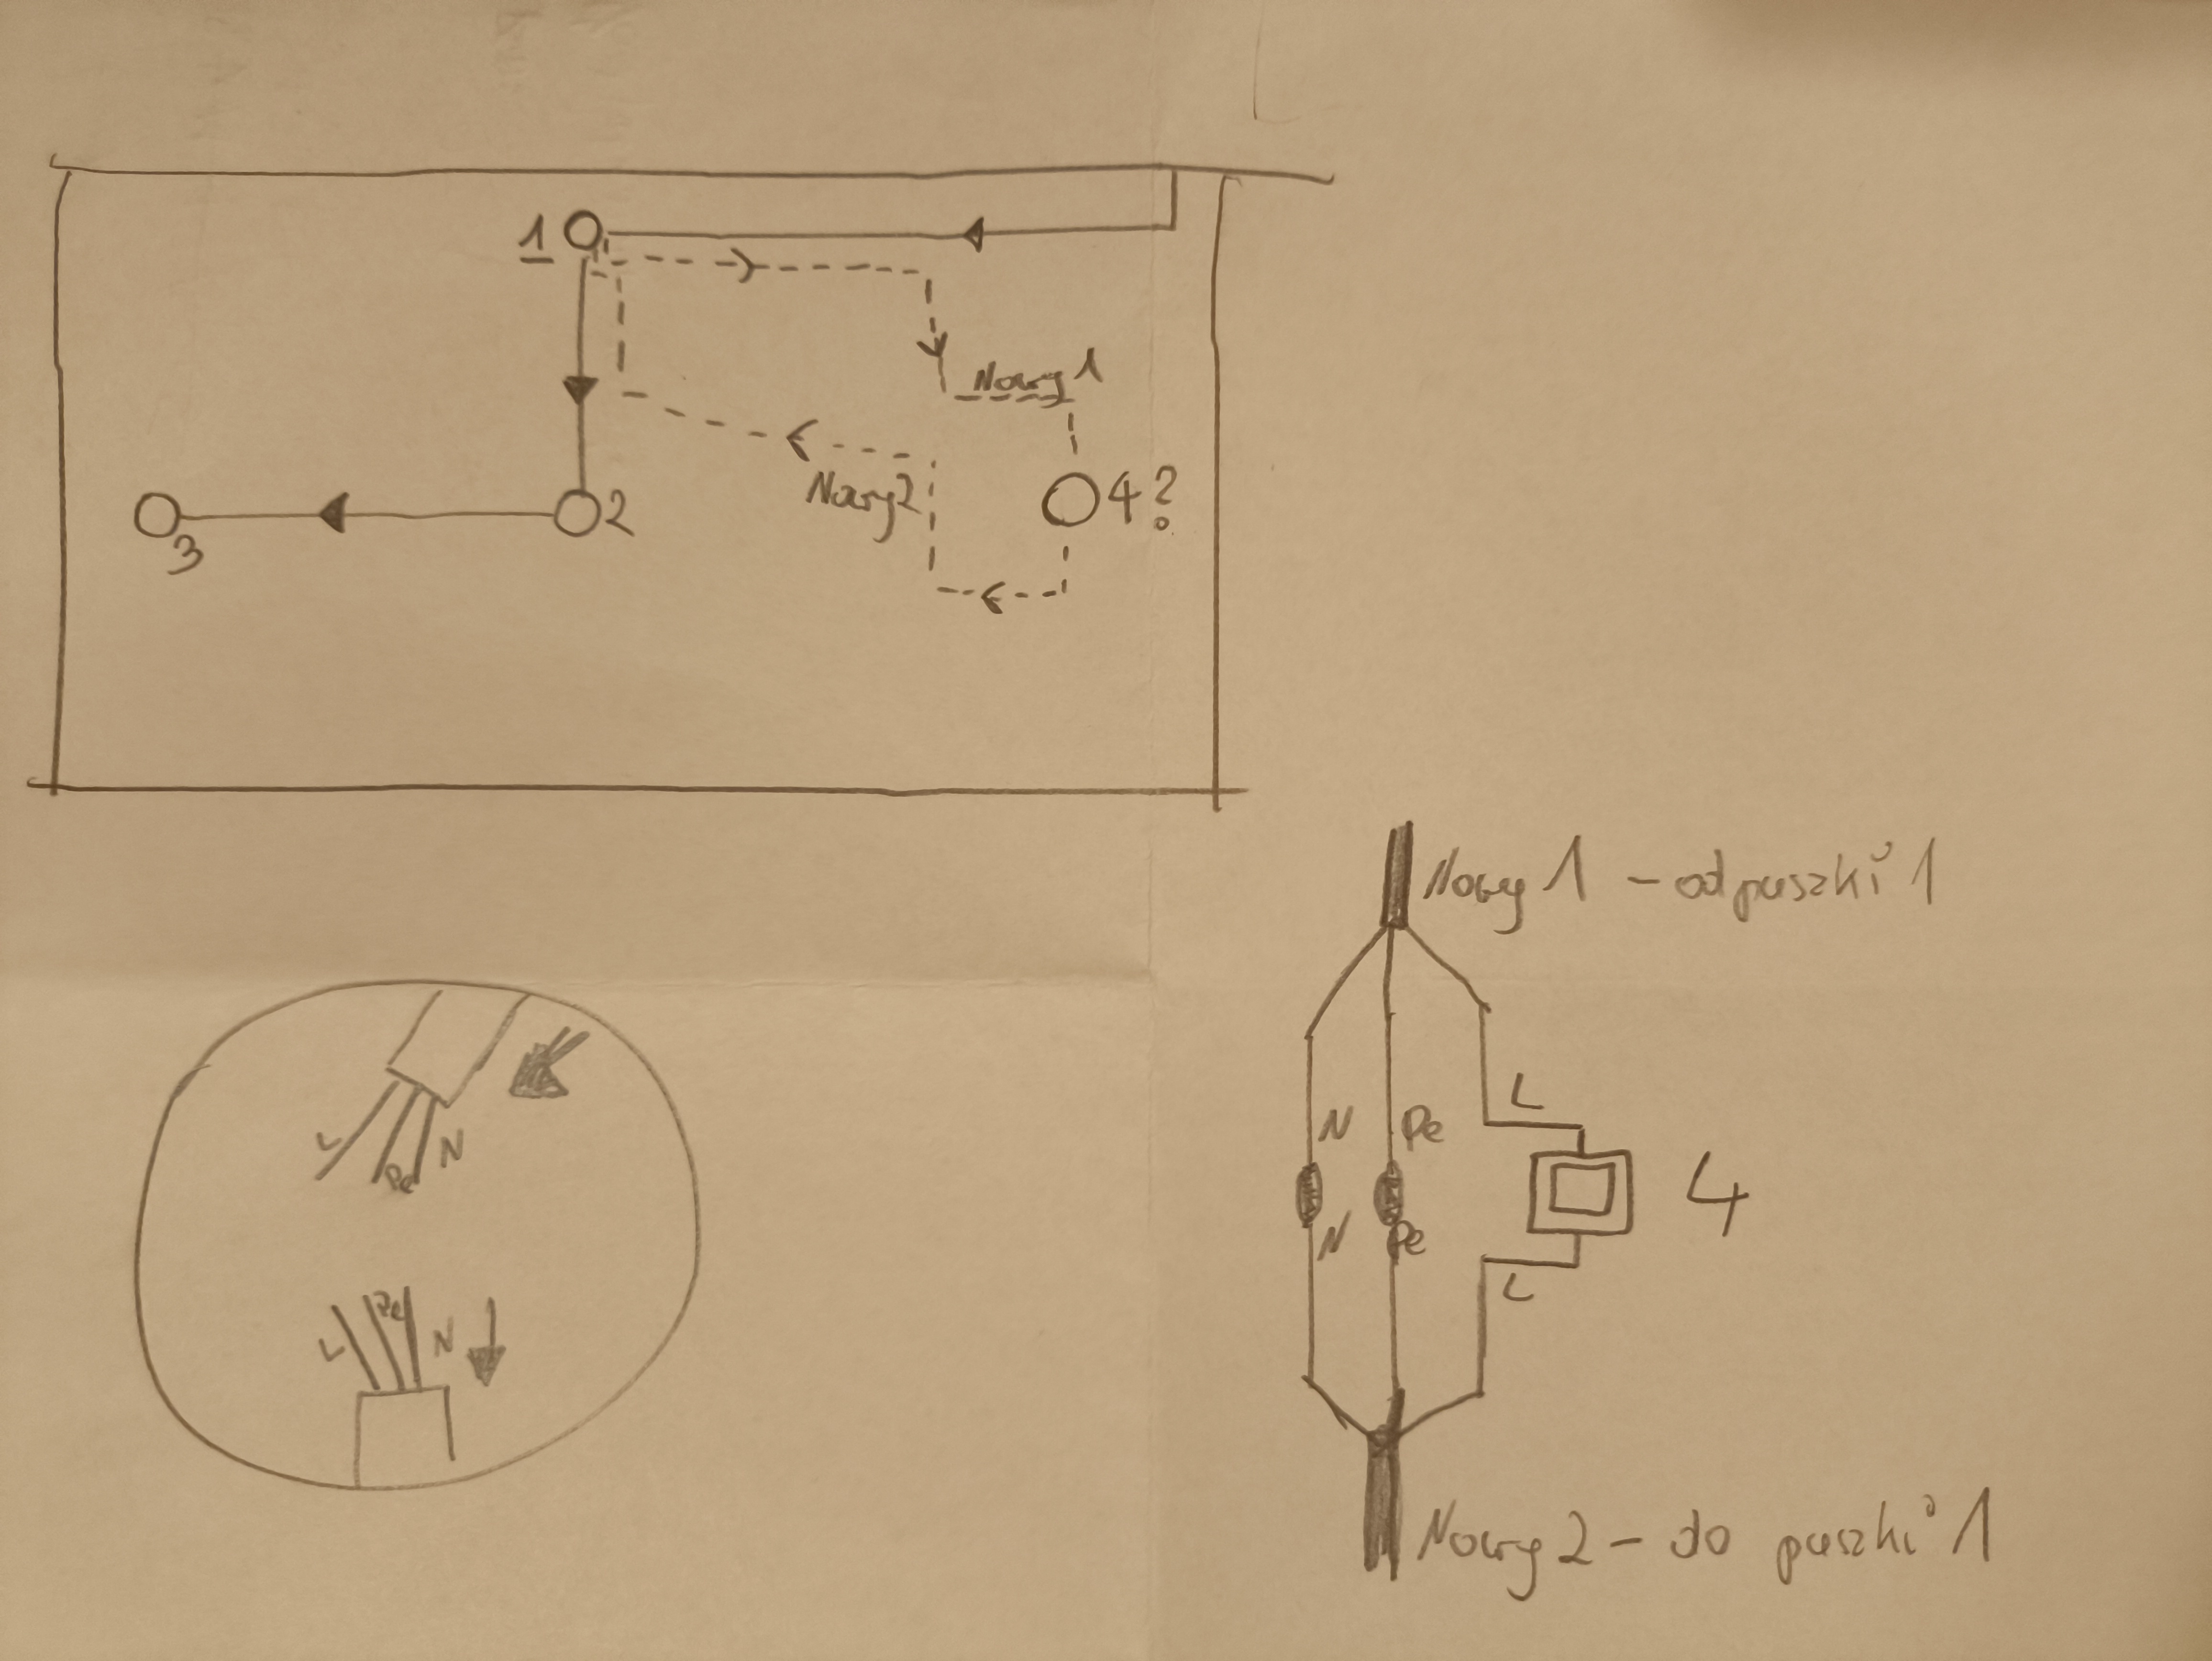 1
Nowy 1
4?
Nowy 2
2
3
Nowy 1 - od puszki 1
L
N
Pe
N
Pe
L
4
L
Pe
N
L
Pe
N
Nowy 2 - do puszki 1